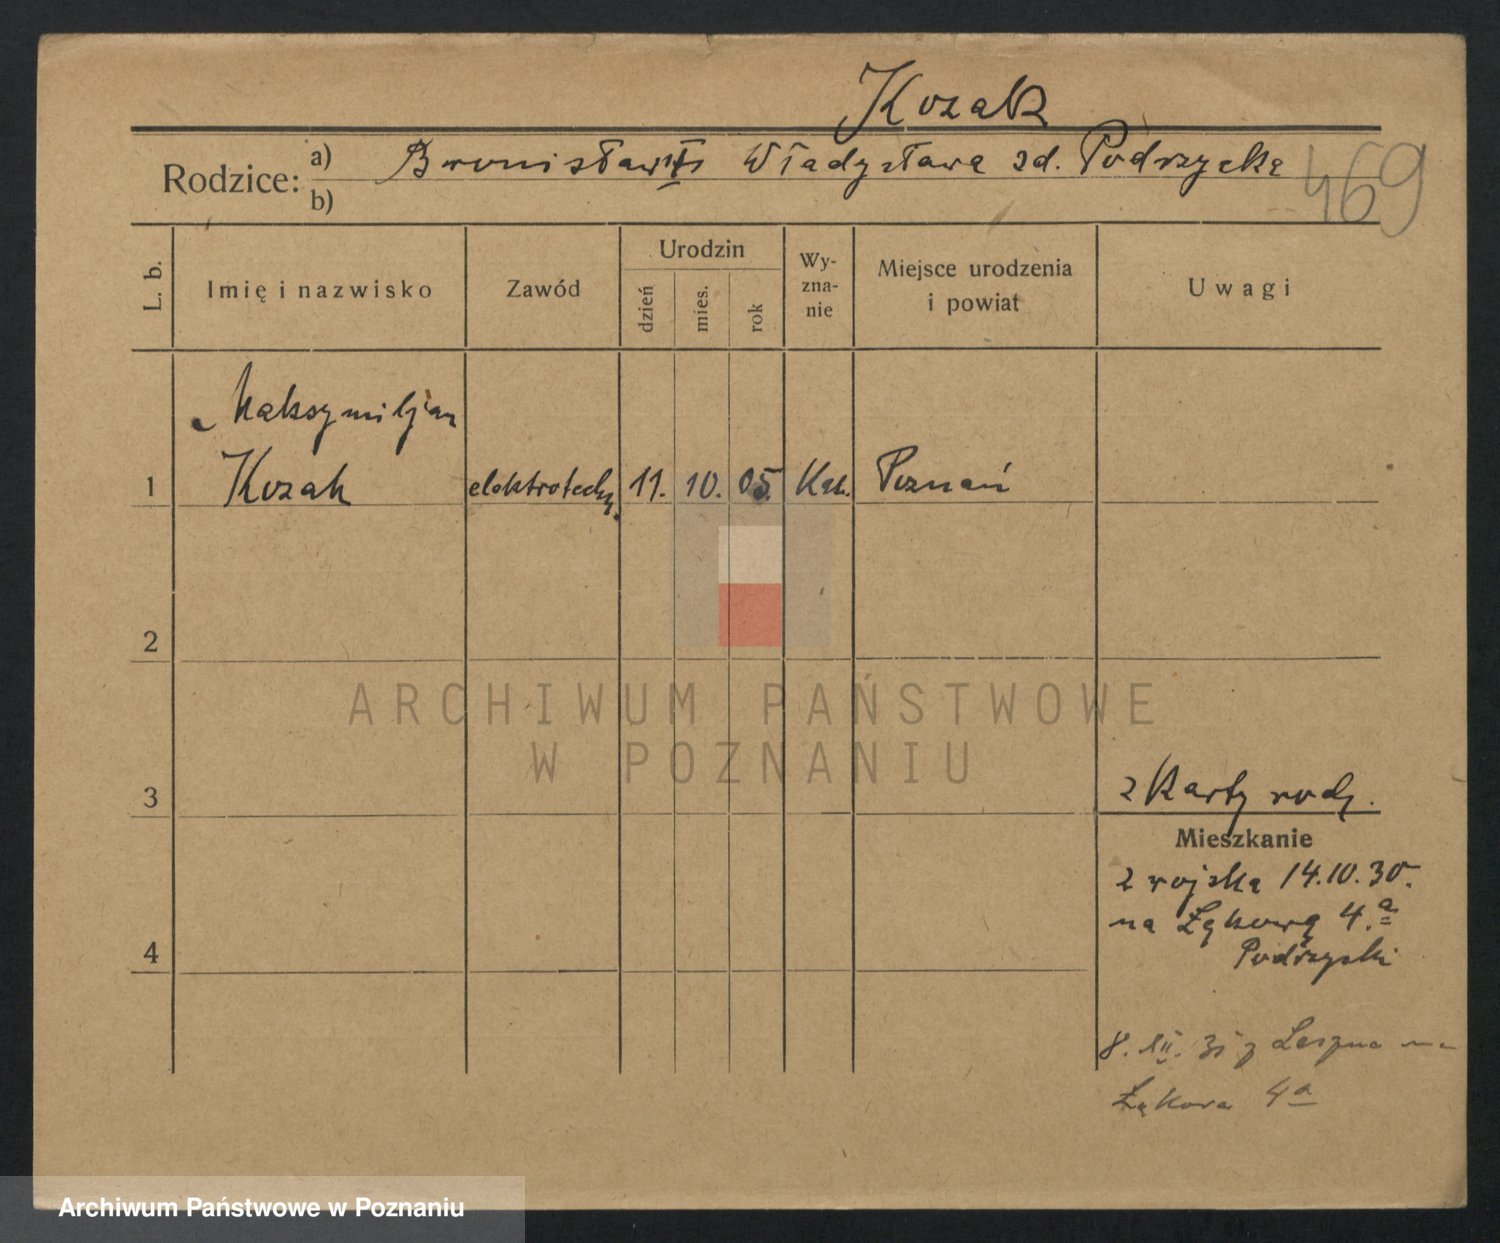 Kozak
Rodzice: a) Bronisław i Władysława zd. Podrzycka
b)
469
L. b. Imię i nazwisko Zawód Urodzin dzień mies. rok Wy-zna-nie Miejsce urodzenia i powiat Uwagi
Maksymiljan
1 Kozak elektrotechn. 11. 10. 05. Kat. Poznań
2
ARCHIWUM PAŃSTWOWE
W POZNANIU
3 z Karty rodz.
Mieszkanie
z wojska 14.10.30.
na Łąkową 4.a
4 Podrzycki
8. XII. 31 z Leszna na
Łąkowa 4a
Archiwum Państwowe w Poznaniu